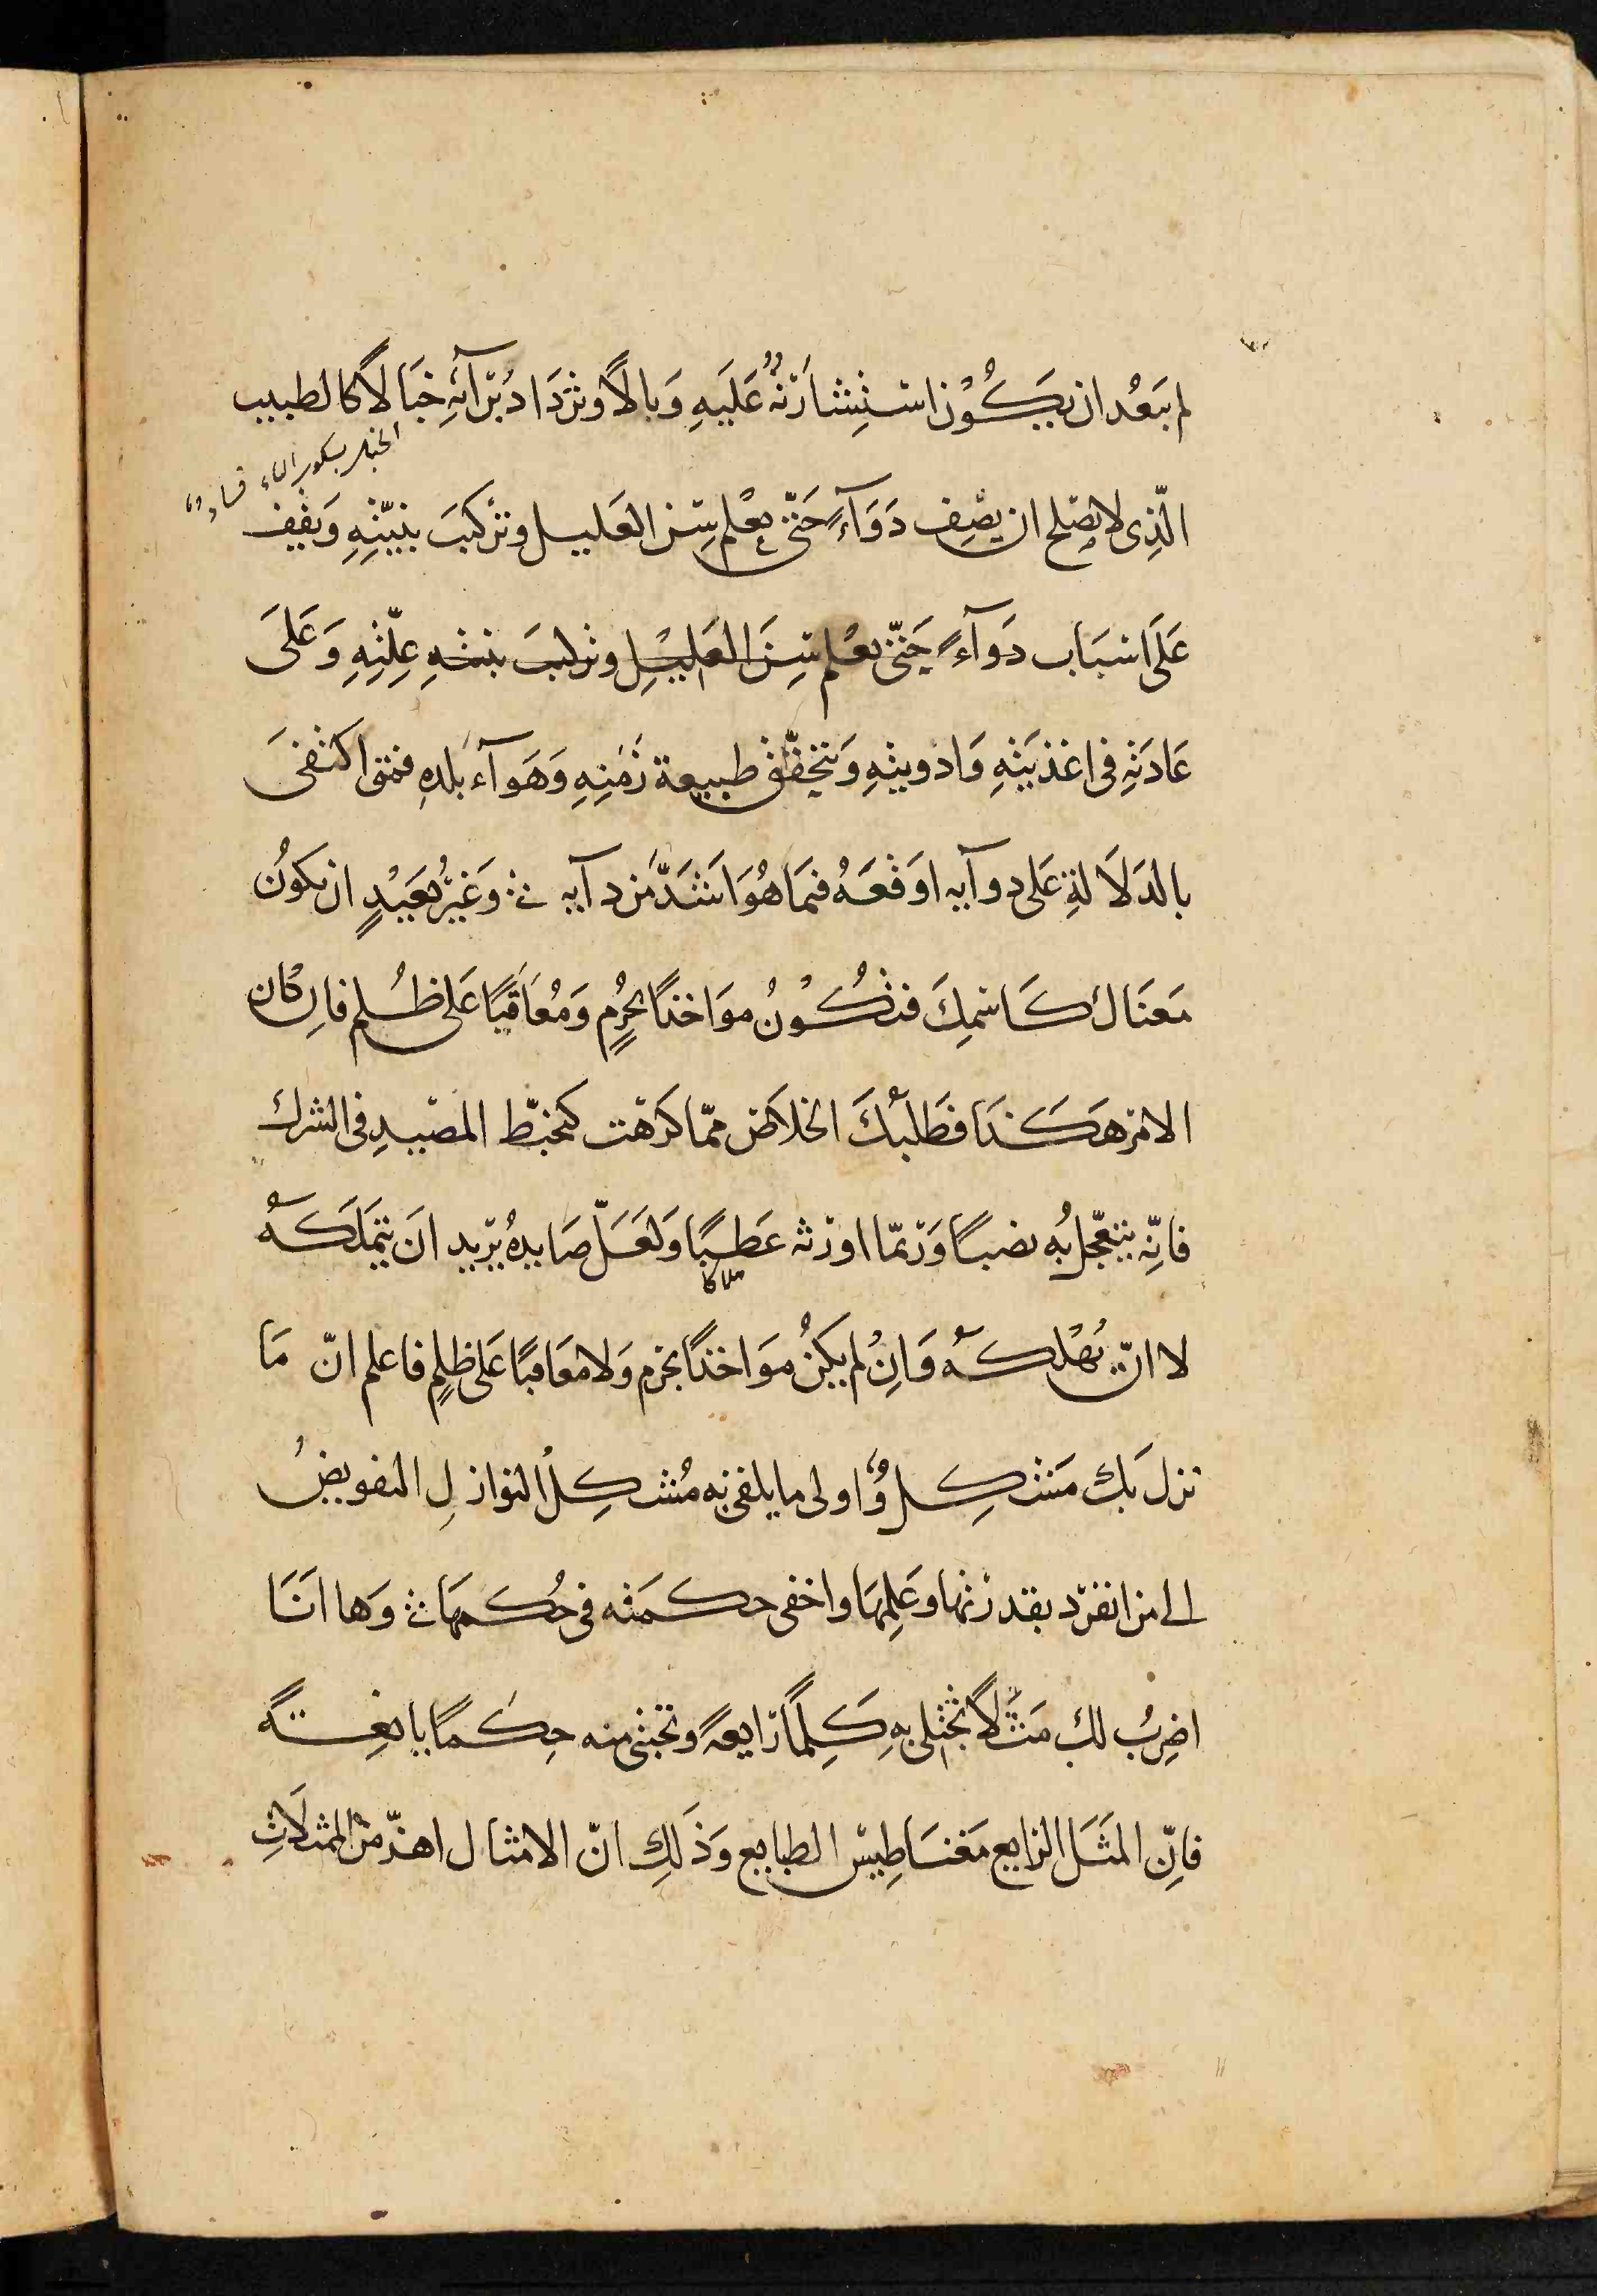 لم يبعُد ان يكُوْن استِشارَتهُ عَلَيهِ وَبالًا وتزدَاد برَآئهِ خبَالًا كالطبيب
الخبل بسكون الباء فساد
الّذِى لا يصْلح ان يصْف دَوَآءً حَتّى يعْلم سِن العَليل وتركيبَ بنيتهِ وَيقف
عَلَى اسبَاب دَوآءً حَتّى يعْلم سِنَ العَليْلِ وتركيبَ بنيتهِ عِلّتِهِ وَعَلَى
عَادَتهِ فى اغذيَتهِ وَادويتهِ وَيتحقّق طبيعة زَمَنِهِ وَهَوآء بَلدِهِ فمتى اكتفىَ
بالدَلَالةِ عَلى دوآيه اوَقعَهُ فيمَا هُوَ اشَدّ من دآيه وَغيْرُ بعَيْدٍ ان يكونُ
مَعنَاك كَاسْمِكَ فتكُوْنُ موَاخذًا بجُرْمٍ وَمُعَاقبًا عَلى ظُلم فاِن كان
الامْر هَكَذَا فطَلبُكَ الخلاَص ممّا كرهْت كتخبّط المصْيدِ فى الشرك
فاِنّه يتعّجل به نصبًا وَرُبّما اورْثه عَطبًا وَلعَلّ صَايدهُ يرْيد انَ يتملَكهُ
هلاكا
لا انْ يُهْلكهُ وَاِنْ لم يكنُ موَاخذًا بجرم وَلا معَاقبًا عَلى ظلمٍ فاعلم انّ مَا
نزل بَك مَشكِلٌ وُاولى ما يلقى به مُشكِلُ النوازلِ التفويضُ
الى من انفرْد بقدرْتها وعَلِمهَا واخفى حكمَته فى حُكمهَا وَها انَا
اضِربُ لك مَثَلًا تجْتلى به كَلِمًا رْايعهً وتجتنى منه حِكمًا يانِعةً
فاِنّ المثَل الرْايع مَغنَاطِيسْ الطبايع وَذَلِكِ انّ الامثال اهذّ من المثلَاثِ